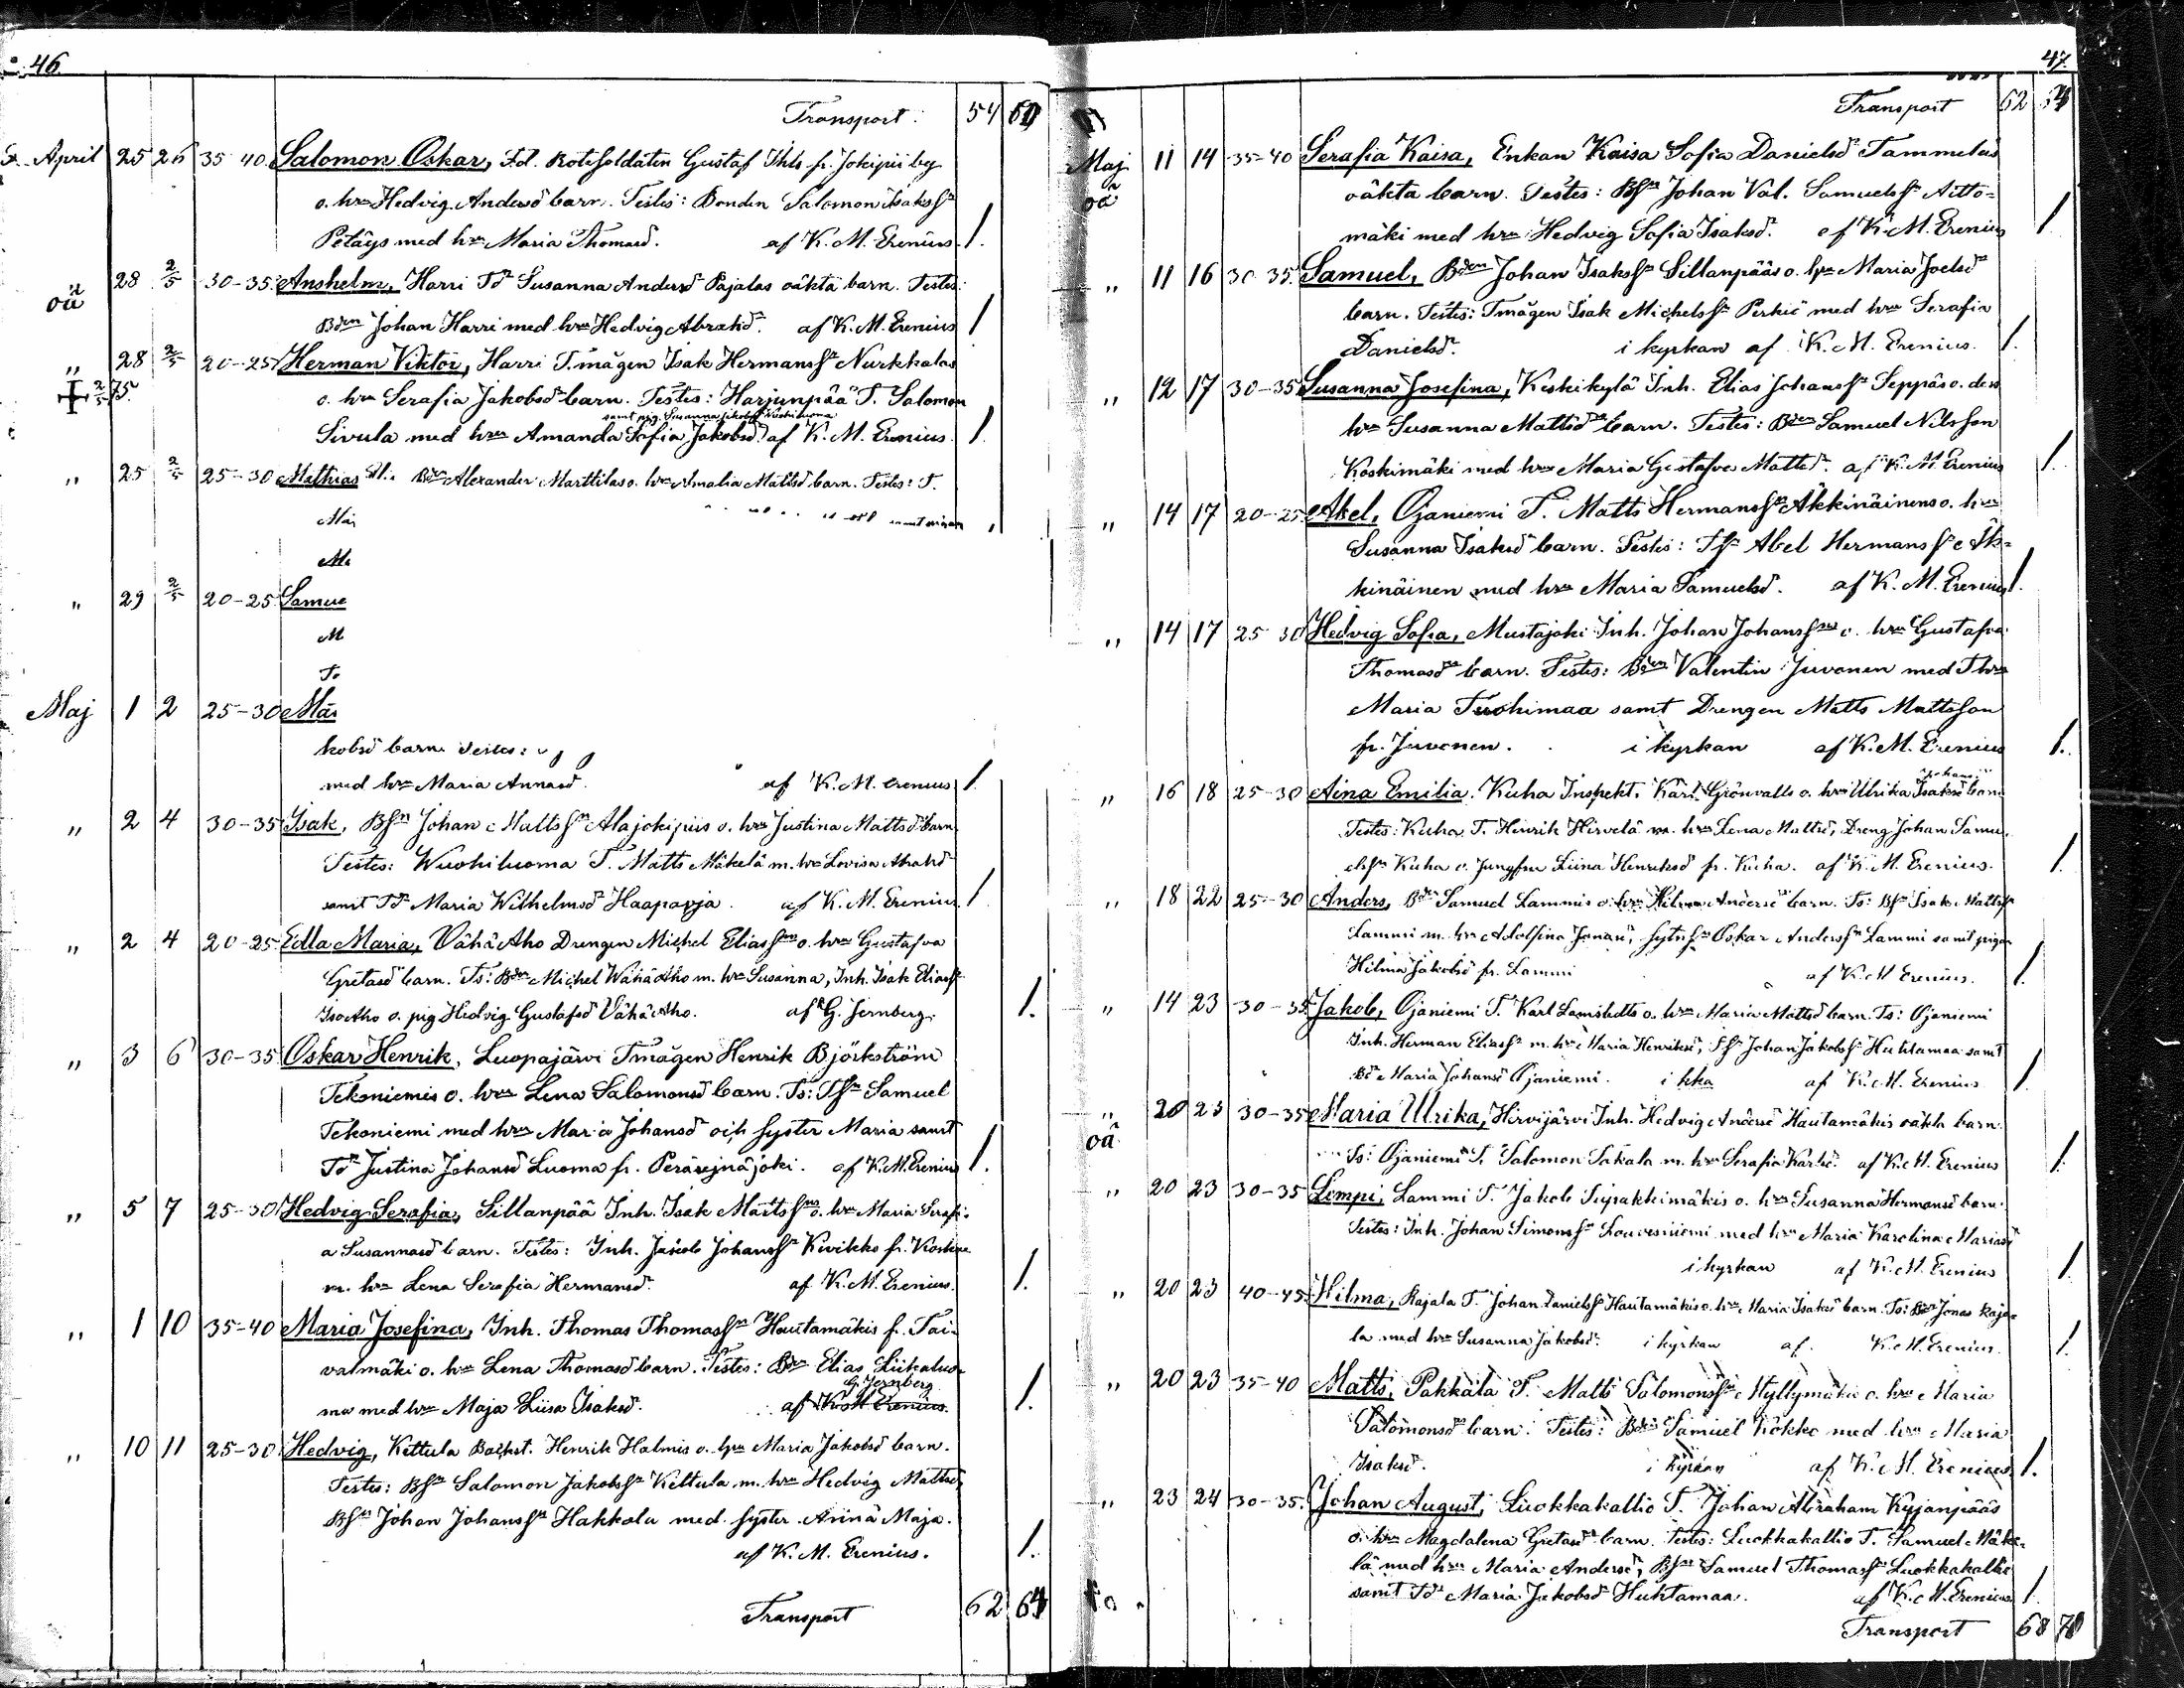 46
Transport 54 60
April 25 26 35-40 Salomon Oskar, Fd. Rotesoldaten Gustaf Ihls fr. Jokipii by
o. hru Hedvig Andersd barn. Testes: Bonden Salomon Isakss
Petäys med hru Maria Thomasd. af K. M. Erenius. 1.
oä 28 2/5 30-35 Anshelm, Harri Tdr Susanna Andersdr Pajalas oäkta barn. Testes:
Bden Johan Harri med hru Hedvig Abrahd. af K. M. Erenius 1
" 28 2/5 20-25 Herman Viktor, Harri T.mågen Isak Hermanss Nurkkalas
2/5 75. o. hru Serafia Jakobsd barn. Testes: Harjunpää T. Salomon
samt pig. Susanna Jakobsd Wuohiluoma
Sivula med hru Amanda Sofia Jakobsd af K. M. Erenius. 1
" 25 2/5 25-30 Mathias Bden Alexander Marttilas o. hru Amalia Mattsd barn. Testes: T.
" 29 2/5 20-25 Samue
M
To
Maj 1 2 25-30
kobsd barn Testes:
med hru Maria Annasd. af K. M. Erenius 1.
" 2 4 30-35 Isak, Bsn Johan Mattss Alajokipiis o. hru Justina Mattsd barn
Testes: Wuohiluoma T. Matts Mäkelä m. hru Lovisa Abrahd
samt Tdr Maria Wilhelmsd Haapaoja. af K. M. Erenius. 1
" 2 4 20-25 Edla Maria, Vähä Aho Drengen Michel Eliasson o. hru Gustafva
Gretasd barn. Ts: Bden Michel Wähä Aho m. hru Susanna, Inh. Isak Eliass
Iso Aho o. pig Hedvig Gustafsd Vähä Aho. af G. Jernberg. 1.
" 3 6 30-35 Oskar Henrik, Luopajärvi Tmågen Henrik Björkström
Tekoniemis o. hru Lena Salomonsd barn. Ts: Tsn Samuel
Tekoniemi med hru Maria Johansd och syster Maria samt
Tdr Justina Johansd Luoma fr. Peräsejnäjoki. af K. M. Erenius 1.
" 5 7 25-30 Hedvig Serafia, Sillanpää Inh. Isak Mattsson o. hru Maria Serafi-
a Susannasd barn. Testes: Inh. Jakob Johanss Kivikko fr. Koskue
m. hru Lena Serafia Hermansd. af K. M. Erenius. 1.
" 1 10 35-40 Maria Josefina, Inh. Thomas Thomass Hautamäkis fr. Tai-
valmäki o. hru Lena Thomasd barn. Testes: Bden Elias Liikaluo-
G. Jernberg
ma med hru Maja Liisa Isaksd. af K. M. Erenius. 1.
" 10 11 25-30 Hedvig, Kettula Backst. Henrik Halmis o. hru Maria Jakobsd barn.
Testes: Bsn Salomon Jakobss Kettula m. hru Hedvig Mattsd,
Bsn Johan Johanss Hakkola med syster Anna Maja.
af K. M. Erenius. 1.
Transport 62 64
47.
Transport 62 64
Maj 11 14 35-40 Serafia Kaisa, Enkan Kaisa Sofia Danielsd Tammelas
oä oäkta barn. Testes: Bsn Johan Val. Samuelss Aitto-
mäki med hru Hedvig Sofia Isaksd. af K. M. Erenius 1
" 11 16 30-35. Samuel, Bden Johan Isakss Sillanpääs o. hru Maria Joelsd
barn. Testes: Tmågen Isak Michelss Perkiö med hru Serafia
Danielsd. i kyrkan af K. M. Erenius. 1.
" 12 17 30-35 Susanna Josefina, Keskikylä Inh. Elias Johanss Seppäs o. dess
hru Susanna Mattsd barn. Testes: Bden Samuel Nilsson
Koskimäki med hru Maria Gustafva Mattsd. af K. M. Erenius 1.
" 14 17 20-25 Abel, Ojaniemi T. Matts Hermanss Äkkinäinens o. hru
Susanna Isaksd barn. Testes: Tsn Abel Hermanss Äk-
kinäinen med hru Maria Samuelsd. af K. M. Erenius 1.
" 14 17 25-30 Hedvig Sofia, Mustajoki Inh. Johan Johanssons o. hru Gustafva
Thomasd barn. Testes: Bden Valentin Juvonen med Thru
Maria Tuohimaa samt Drengen Matts Mattsson
fr. Juvonen. i kyrkan af K. M. Erenius 1.
" 16 18 25-30 Aina Emilia. Kuha Inspekt. Karl Grönvalls o. hru Ulrika Isaksd barn
Testes: Kuha T. Henrik Hirvelä m. hru Lena Mattsd, Dreng Johan Samu-
elss Kuha o. Jungfru Liina Henriksd fr. Kuha. af K. M. Erenius. 1.
" 18 22 25-30 Anders, Bden Samuel Lammis o. hru Hilma Andersd barn. Ts: Bsn Isak Mattss
Lammi m. hru Adolfina Jonasd, Sytns Oskar Anderss Lammi samt pigan
Hilma Jakobsd fr. Lammi af K. M. Erenius. 1.
" 14 23 30-35 Jakob, Ojaniemi T. Karl Lamstedts o. hru Maria Mattsd barn. Ts: Ojaniemi
Inh. Herman Eliass m. hru Maria Henriksd, Tsn Johan Jakobss Huhtamaa samt
Bdr Maria Johansd Ojaniemi. i kka af K. M. Erenius 1.
" 20 23 30-35 Maria Ulrika, Hirvijärvi Inh. Hedvig Andersd Hautamäkis oäkta barn.
oä Ts: Ojaniemi T. Salomon Takala m. hru Serafia Karlsd. af K. M. Erenius 1.
" 20 23 30-35 Lempi, Lammi T. Jakob Tupakkimäkis o. hru Susanna Hermansd barn.
Testes: Inh. Johan Simonss Louvesniemi med hru Maria Karolina Mariasd
i kyrkan af K. M. Erenius 1.
" 20 23 40-45 Hilma, Rajala T. Johan Danielss Hautamäkis o. hru Maria Isaksd barn. Ts: Bden Jonas Raja-
la med hru Susanna Jakobsd. i kyrkan af K. M. Erenius. 1.
" 20 23 35-40 Matts, Pakkala T. Matts Salomonss Myllymäkis o. hru Maria
Salomonsd barn. Testes: Bden Samuel Kokko med hru Maria
Isaksd. i kyrkan af K. M. Erenius 1.
" 23 24 30-35. Johan August, Luokkakallio T. Johan Abraham Kyjanpääs
o. hru Magdalena Gretasd barn. Testes: Luokkakallio T. Samuel Mäke-
lä med hru Maria Andersd, Bsn Samuel Thomass Luokkakallio
samt Tdr Maria Jakobsd Huhtamaa. af K. M. Erenius 1.
Transport 68 70